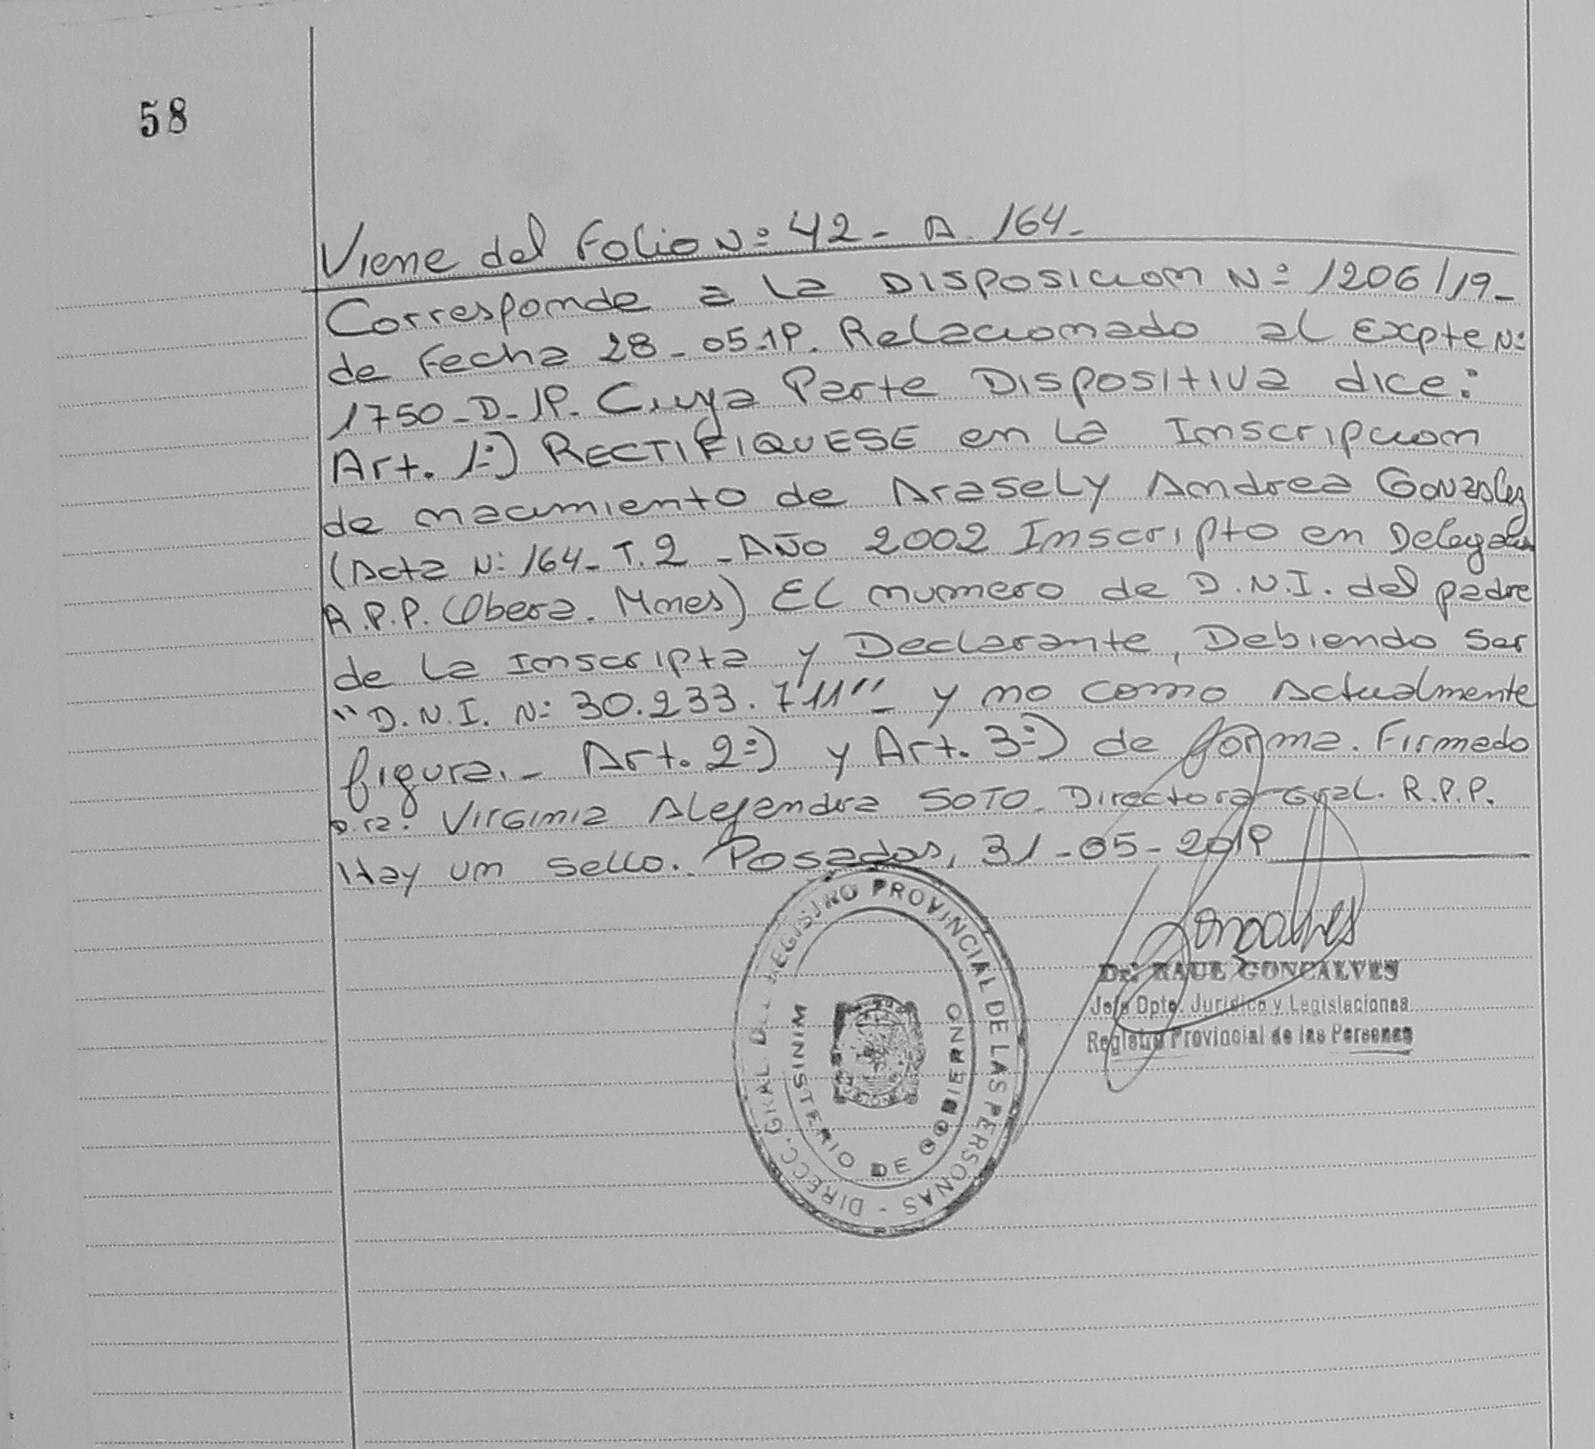 58
Viene del Folio Nº 42 - A. 164 -
Corresponde a la DISPOSICION Nº 1206/19 -
de Fecha 28 - 05-19. Relacionado al Expte Nº
1750 - D - 19. Cuya Parte Dispositiva dice:
Art. 1º) RECTIFIQUESE en la Inscripcion
de nacimiento de Arasely Andrea Gonzalez
(Acta Nº 164 - T. 2 - AÑO 2002 Inscripto en
R.P.P. (Obera. Mnes) El numero de D.N.I. del padre
de la Inscripta y Declarante, Debiendo Ser
"D.N.I. Nº 30.233.711" y no como Actualmente
figura. - Art. 2º) y Art. 3º) de forma. Firmado
D.ra. Virginia Alejandra SOTO - Directora Gral. R.P.P.
Hay un sello. Posadas, 31 - 05 - 2019
DIRECC. GRAL DEL REGISTRO PROVINCIAL DE LAS PERSONAS -
MINISTERIO DE GOBIERNO
Goncalves
Dr. RAUL GONCALVES
Jefe Dpto. Jurídico y Legislaciones
Registro Provincial de las Personas